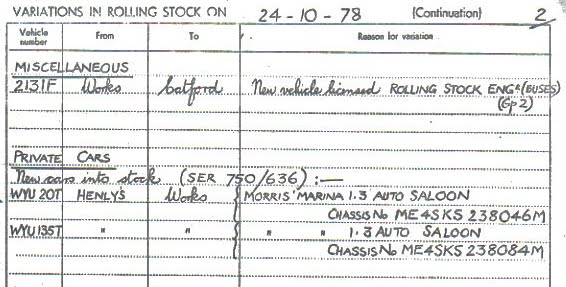 VARIATIONS IN ROLLING STOCK ON 24-10-78 (Continuation) 2
Vehicle number From To Reason for variation
MISCELLANEOUS
2131F Works Catford New vehicle licensed ROLLING STOCK ENGR (BUSES)
(Gp 2)
PRIVATE CARS
New cars into stock (SER 750/636) :—
WYU 20T HENLY'S Works MORRIS MARINA 1.3 AUTO SALOON
CHASSIS No ME4SKS 238046M
WYU 135T " " " " 1.3 AUTO SALOON
CHASSIS No ME4SKS 238084M